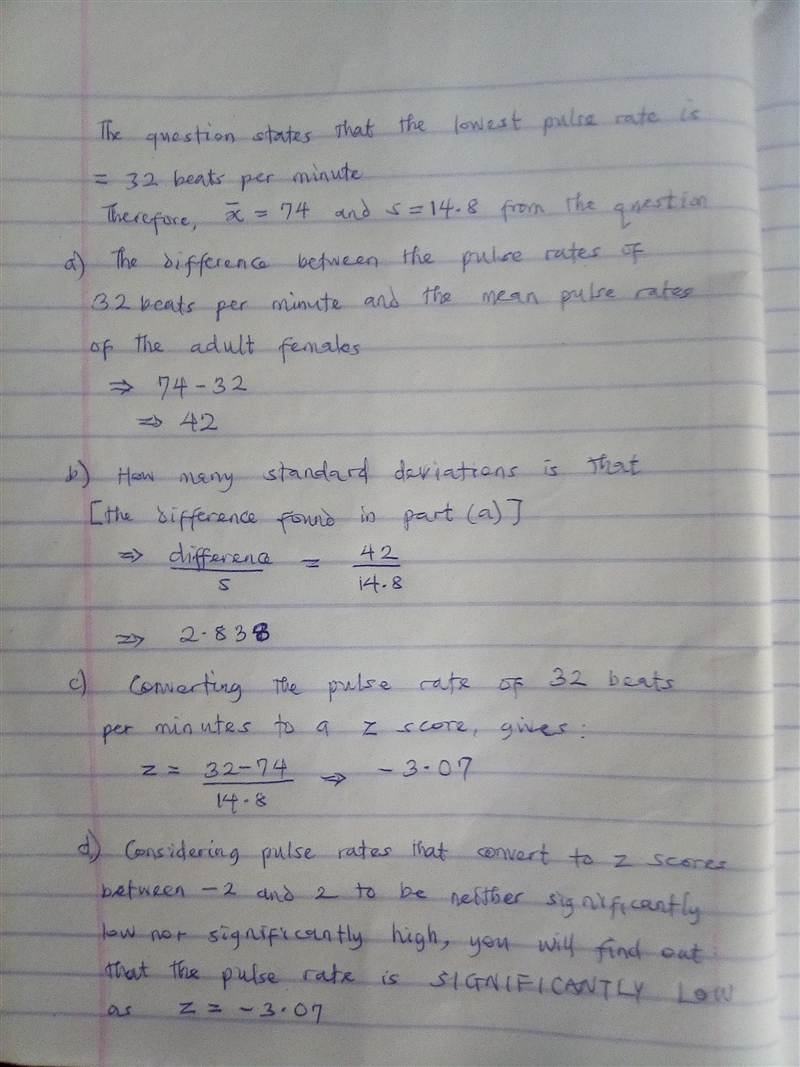 The question states that the lowest pulse rate is
= 32 beats per minute
Therefore, x̄ = 74 and s = 14.8 from the question
a) The difference between the pulse rates of
32 beats per minute and the mean pulse rates
of the adult females
⇒ 74 - 32
⇒ 42
b) How many standard deviations is that
[the difference found in part (a)]
⇒ difference / s = 42 / 14.8
⇒ 2.838
c) Converting the pulse rate of 32 beats
per minutes to a z score, gives:
z = 32-74 / 14.8 ⇒ -3.07
d) Considering pulse rates that convert to z scores
between -2 and 2 to be neither significantly
low nor significantly high, you will find out
that the pulse rate is SIGNIFICANTLY LOW
as z = -3.07